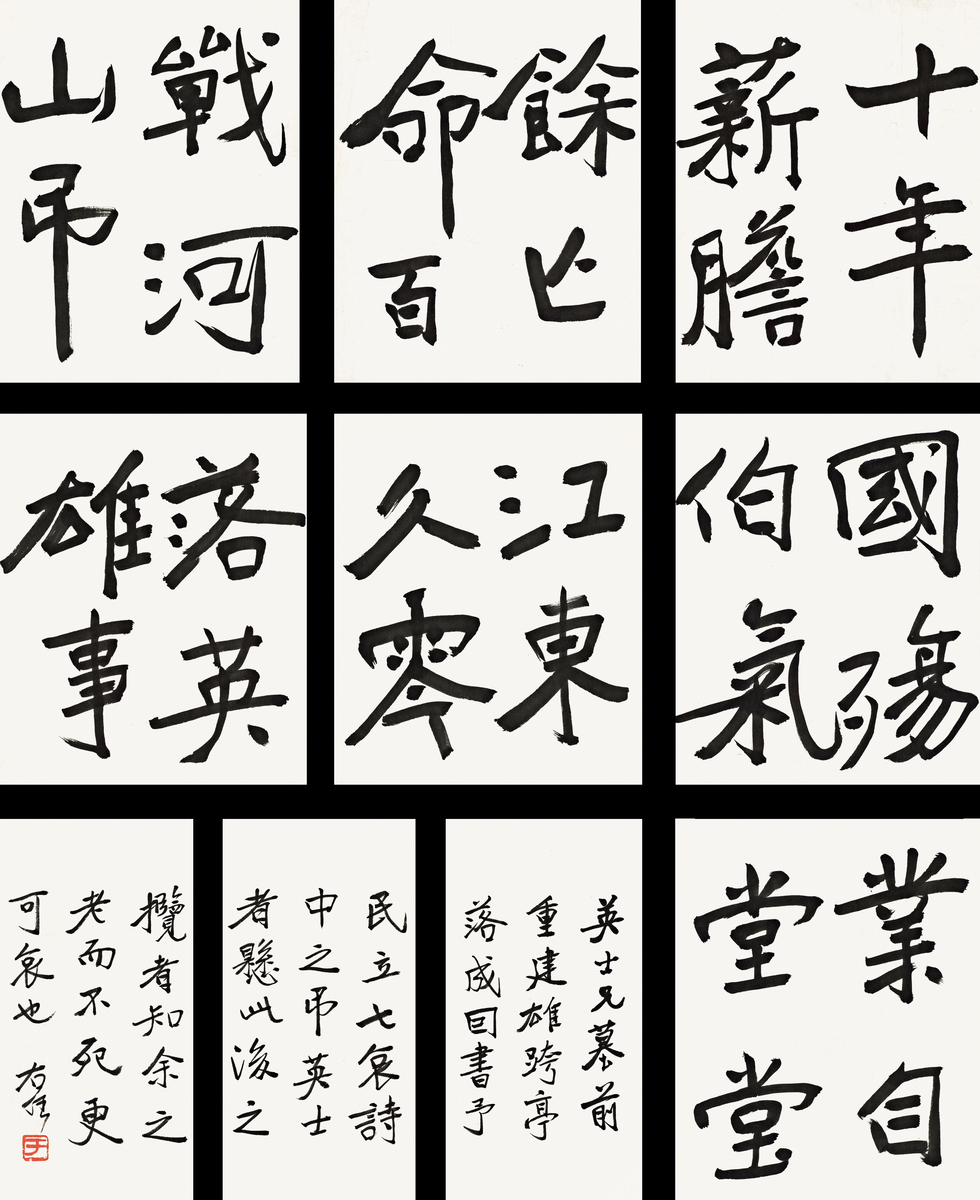 十年
薪膽
餘亾
命百
戰河
山弔
國殤
伯氣
江東
久零
落英
雄事
業自
堂堂
英士兄墓前
重建雄跨亭
落成囙書予
民立七哀詩
中之弔英士
者懸此後之
攬者知余之
老而不死更
可哀也 右任